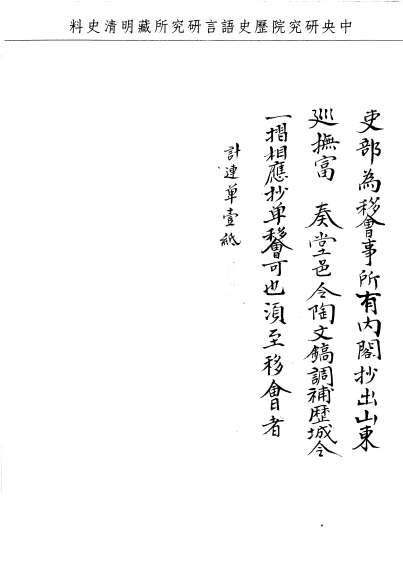 中央研究院歷史語言研究所藏明清史料
吏部為移會事所有內閣抄出山東
巡撫富 奏堂邑令陶文鎬調補歷城令
一摺相應抄单移會可也須至移會者
計連单壹紙